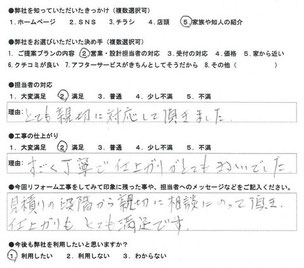 ●弊社を知っていただいたきっかけ（複数選択可）
1. ホームページ 2. SNS 3. チラシ 4. 店頭 ⑤ 家族や知人の紹介
●弊社をお選びいただいた決め手（複数選択可）
1. ご提案プランの内容 ② 営業・設計担当者の対応 3. 受付の対応 4. 価格 5. 家から近い
6. クチコミが良い 7. アフターサービスがきちんとしてそうだから 8. その他（ ）
●担当者の対応
1. 大変満足 ② 満足 3. 普通 4. 少し不満 5. 不満
理由： とても親切に対応して頂きました。
●工事の仕上がり
1. 大変満足 ② 満足 3. 普通 4. 少し不満 5. 不満
理由： すごく丁寧で仕上がりがとてもきれいでした。
●今回リフォーム工事をしてみて印象に残った事や、担当者へのメッセージなどをご記入ください。
見積りの段階から親切に相談にのって頂き、
仕上がりもとても満足です。
●今後も弊社を利用したいと思いますか？
① 利用したい 2. 利用しない 3. わからない